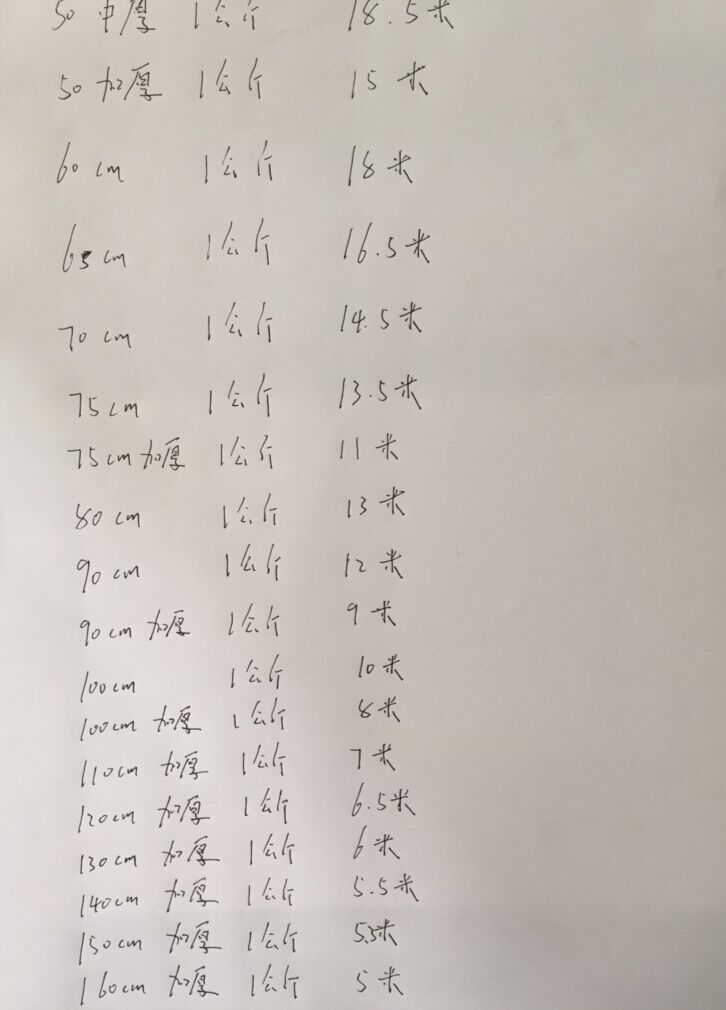 50 中厚 1公斤 18.5米
50 加厚 1公斤 15米
60cm 1公斤 18米
65cm 1公斤 16.5米
70cm 1公斤 14.5米
75cm 1公斤 13.5米
75cm 加厚 1公斤 11米
80cm 1公斤 13米
90cm 1公斤 12米
90cm 加厚 1公斤 9米
100cm 1公斤 10米
100cm 加厚 1公斤 8米
110cm 加厚 1公斤 7米
120cm 加厚 1公斤 6.5米
130cm 加厚 1公斤 6米
140cm 加厚 1公斤 5.5米
150cm 加厚 1公斤 5.3米
160cm 加厚 1公斤 5米